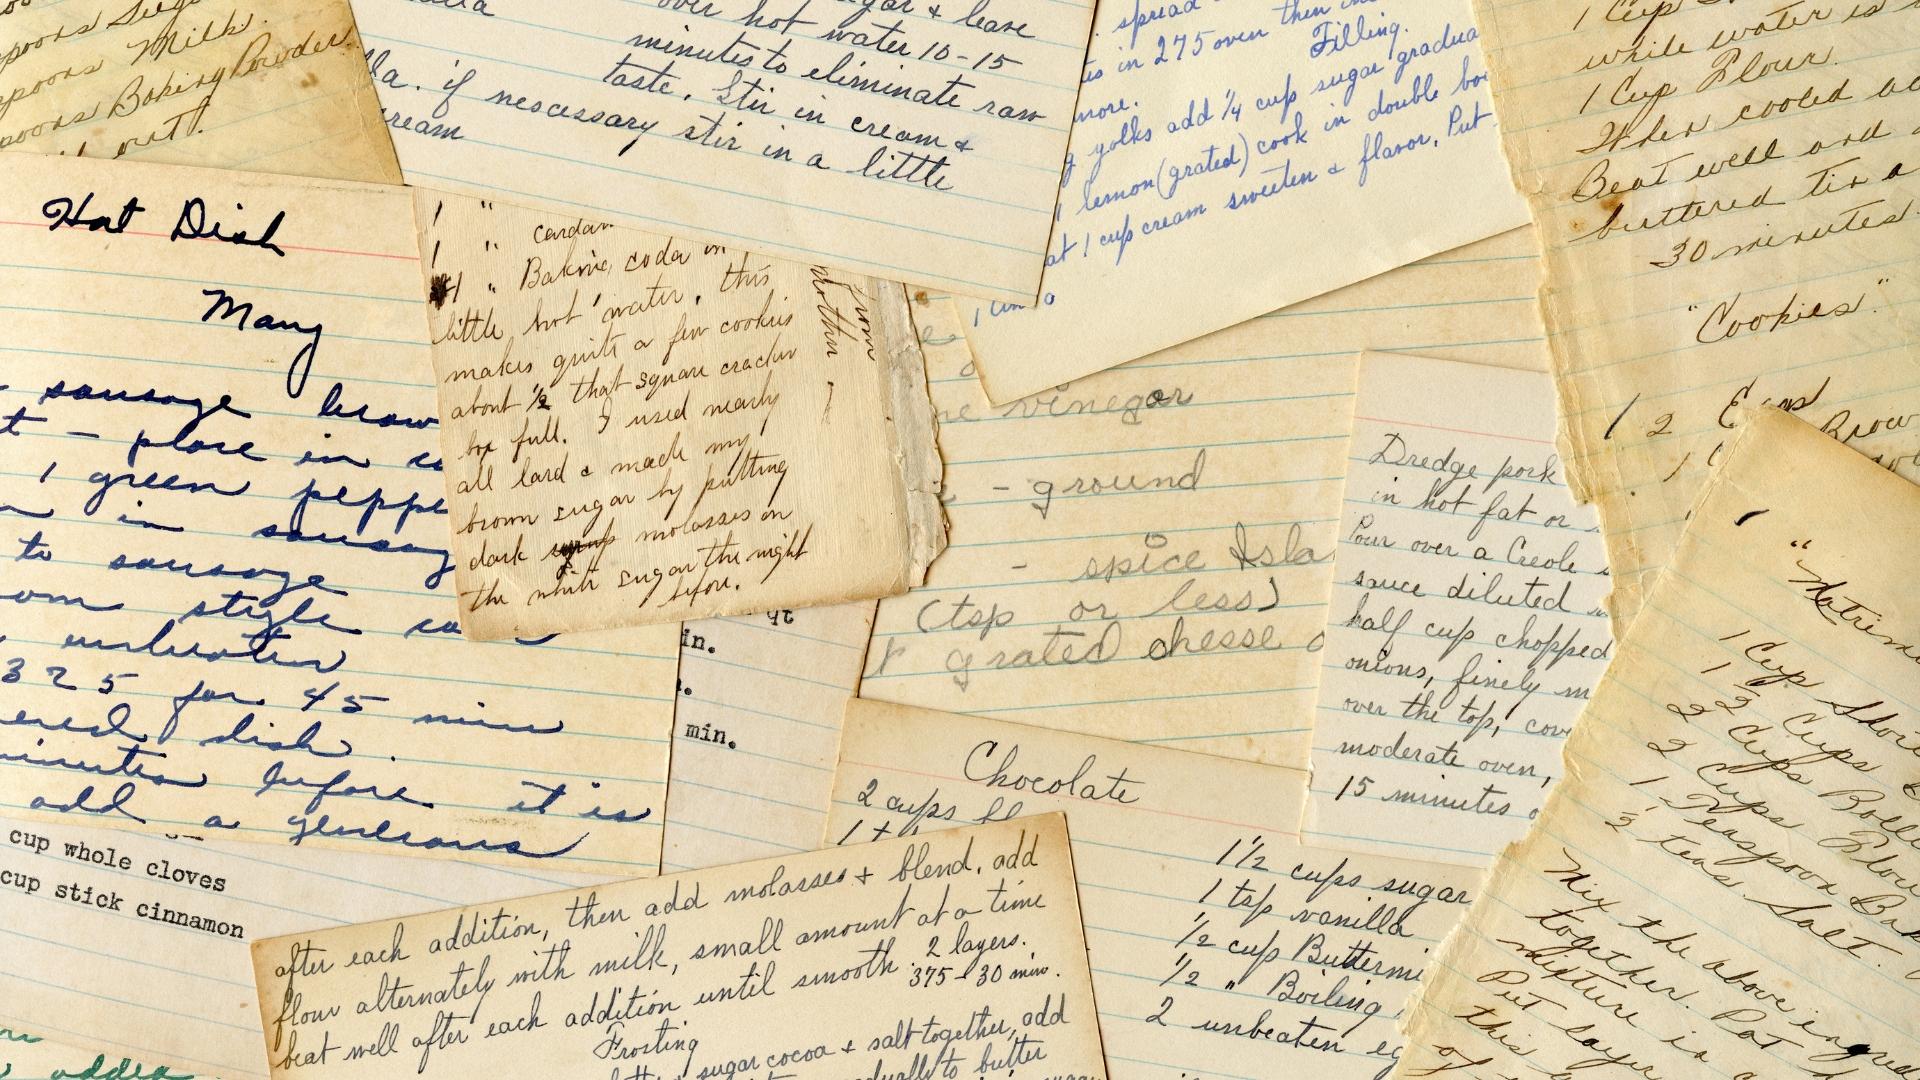 spoons Milk
spoons Baking Powder
out.
sugar & leave
over hot water 10-15
minutes to eliminate raw
taste. Stir in cream &
if nescessary stir in a little
cream
spread
in 275 oven then in
Filling.
more.
yolks add 1/4 cup sugar gradua
1 lemon (grated) cook in double bo
at 1 cup cream sweeten & flavor. Put
1 Cup
while water is
1 Cup Flour.
When cooled ad
Beat well and
buttered tin a
30 minutes.
"Cookies"
1 2 Eggs
Brow
Hot Dish
Mary
sausage brow
t - place in
1 green peppe
in sausag
to sausage
om style
325 for 45 min
ered dish
minutes before it is
add a generous
1 " cardam
1 " Baking soda in
little hot water, this
makes quite a few cookies
about 1/2 that square cracker
box full. I used nearly
all lard & made my
brown sugar by putting
dark syrup molasses on
the white sugar the night
before.
From
Mother
vinegar
- ground
- spice Isla
(tsp or less)
grated cheese
Dredge pork
in hot fat or
Pour over a Creole
sauce diluted
half cup chopped
onions, finely m
over the top, cov
moderate oven,
15 minutes
qt
in.
min.
Chocolate
2 cups
1 1/2 cups sugar
1 tsp vanilla
1/2 cup Buttermi
1/2 " Boiling
2 unbeaten eg
cup whole cloves
cup stick cinnamon
added
after each addition, then add molasses & blend, add
flour alternately with milk, small amount at a time
beat well after each addition until smooth. 2 layers.
375 - 30 min.
Frosting
sugar cocoa & salt together, add
gradually to butter
"Matrim
1 Cup Short
1 1/2 Cups
2 Cups Boil
2 Cups Flou
1 Teaspoon Bak
1/2 teas. Salt.
Mix the above ingred
together. Pat
mixture in a
Put layer
this
of